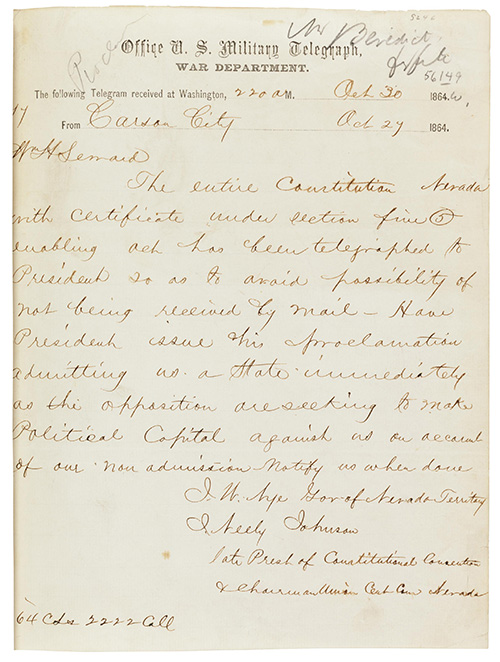 5640
Mr Benedict
Office U. S. Military Telegraph,
WAR DEPARTMENT.
56149
The following Telegram received at Washington, 220 a M. Oct 30 1864.
From Carson City Oct 27 1864.
Wm H Seward
The entire Constitution Nevada
with certificate under section five 5
enabling act has been telegraphed to
President so as to avoid possibility of
not being received by mail - Have
President issue his proclamation
admitting us a State immediately
as the opposition are seeking to make
Political Capital against us on account
of our non admission Notify us when done
J. W. Nye Gov of Nevada Territory
J Neely Johnson
late Prest of Constitutional Convention
& Chairman Union Cent Com Nevada
64 Cds 2222 Coll